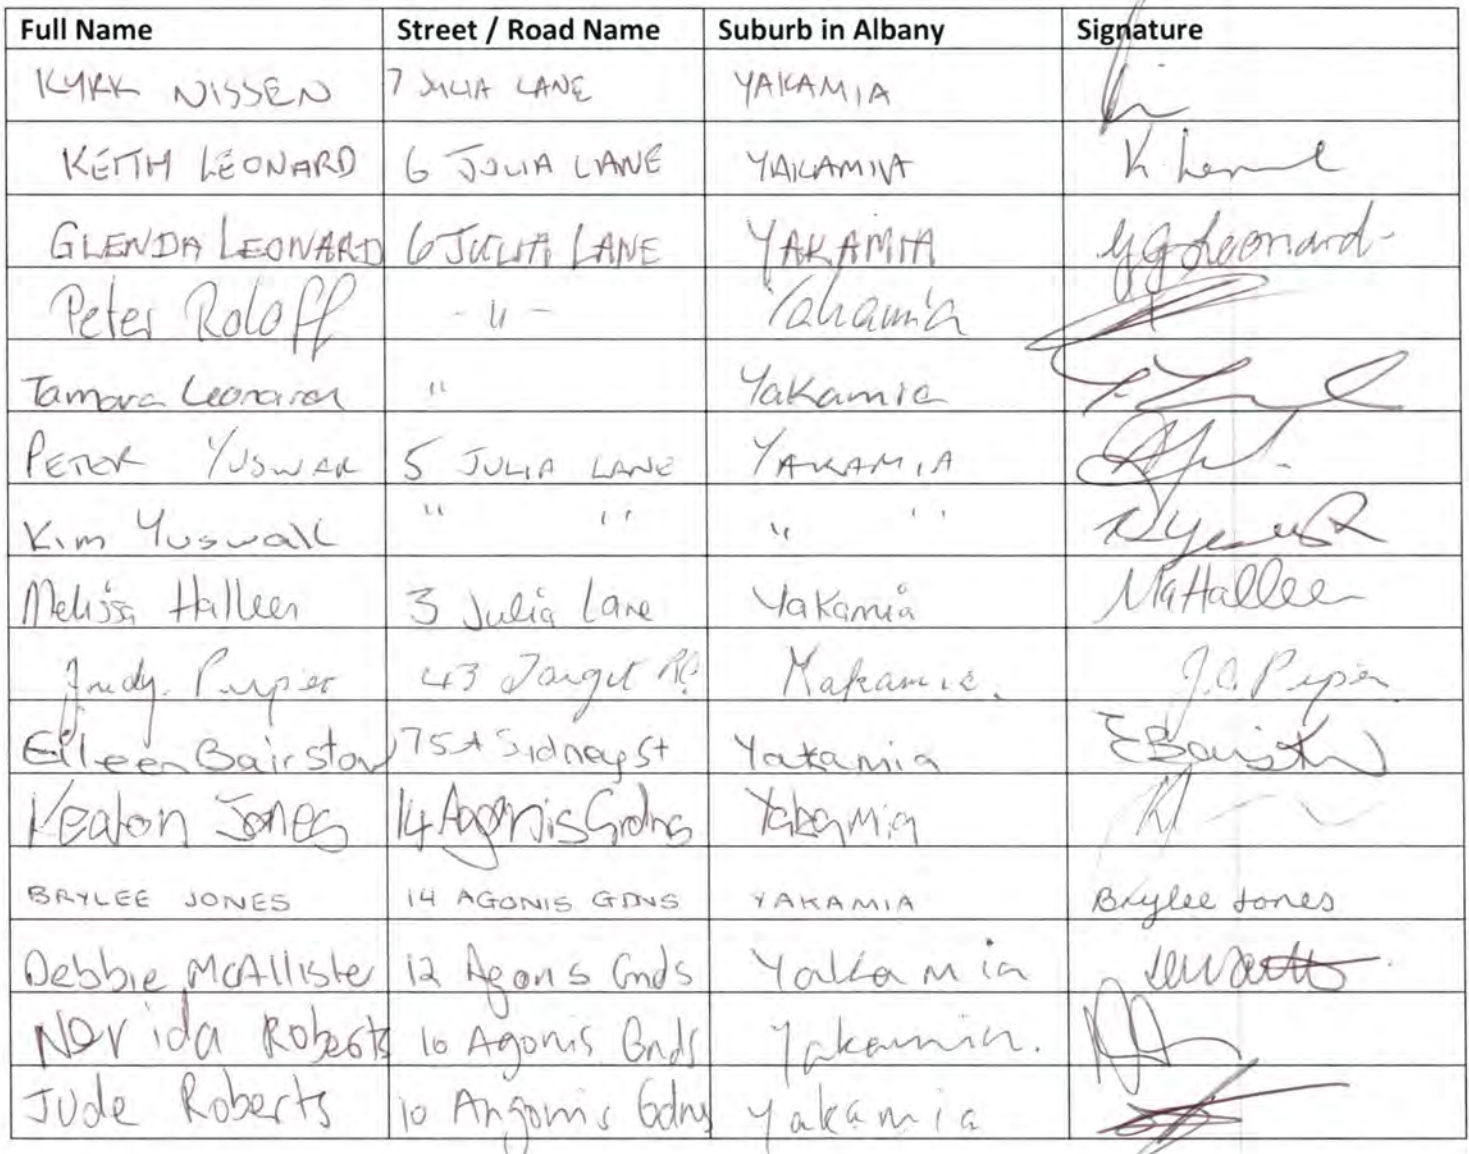 Full Name Street / Road Name Suburb in Albany Signature
KYRK NISSEN 7 JULIA LANE YAKAMIA
KEITH LEONARD 6 JULIA LANE YAKAMIA K. Leonard
GLENDA LEONARD 6 JULIA LANE YAKAMIA G Leonard
Peter Roloff - " - Yakamia
Tamara Leonard " Yakamia
PETER YUSWAK 5 JULIA LANE YAKAMIA
Kim Yuswak " " " "
Melissa Halleen 3 Julia Lane Yakamia Halleen
Judy Piper 43 Target Rd. Yakamia. J.A. Piper
Eileen Bairstow 75A Sidney St Yakamia E Bairstow
Keaton Jones 14 Agonis Grdns Yakamia
BRYLEE JONES 14 AGONIS GDNS YAKAMIA Brylee Jones
Debbie McAllister 12 Agonis Gnds Yakamia
Nerida Roberts 10 Agonis Gnds Yakamia.
Jude Roberts 10 Angonis Gdns Yakamia